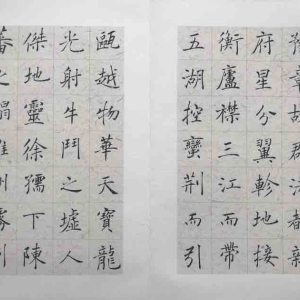 豫章故郡洪都新
府星分翼軫地接
衡廬襟三江而帶
五湖控蠻荊而引
甌越物華天寶龍
光射牛鬥之墟人
傑地靈徐孺下陳
蕃之榻雄州霧列